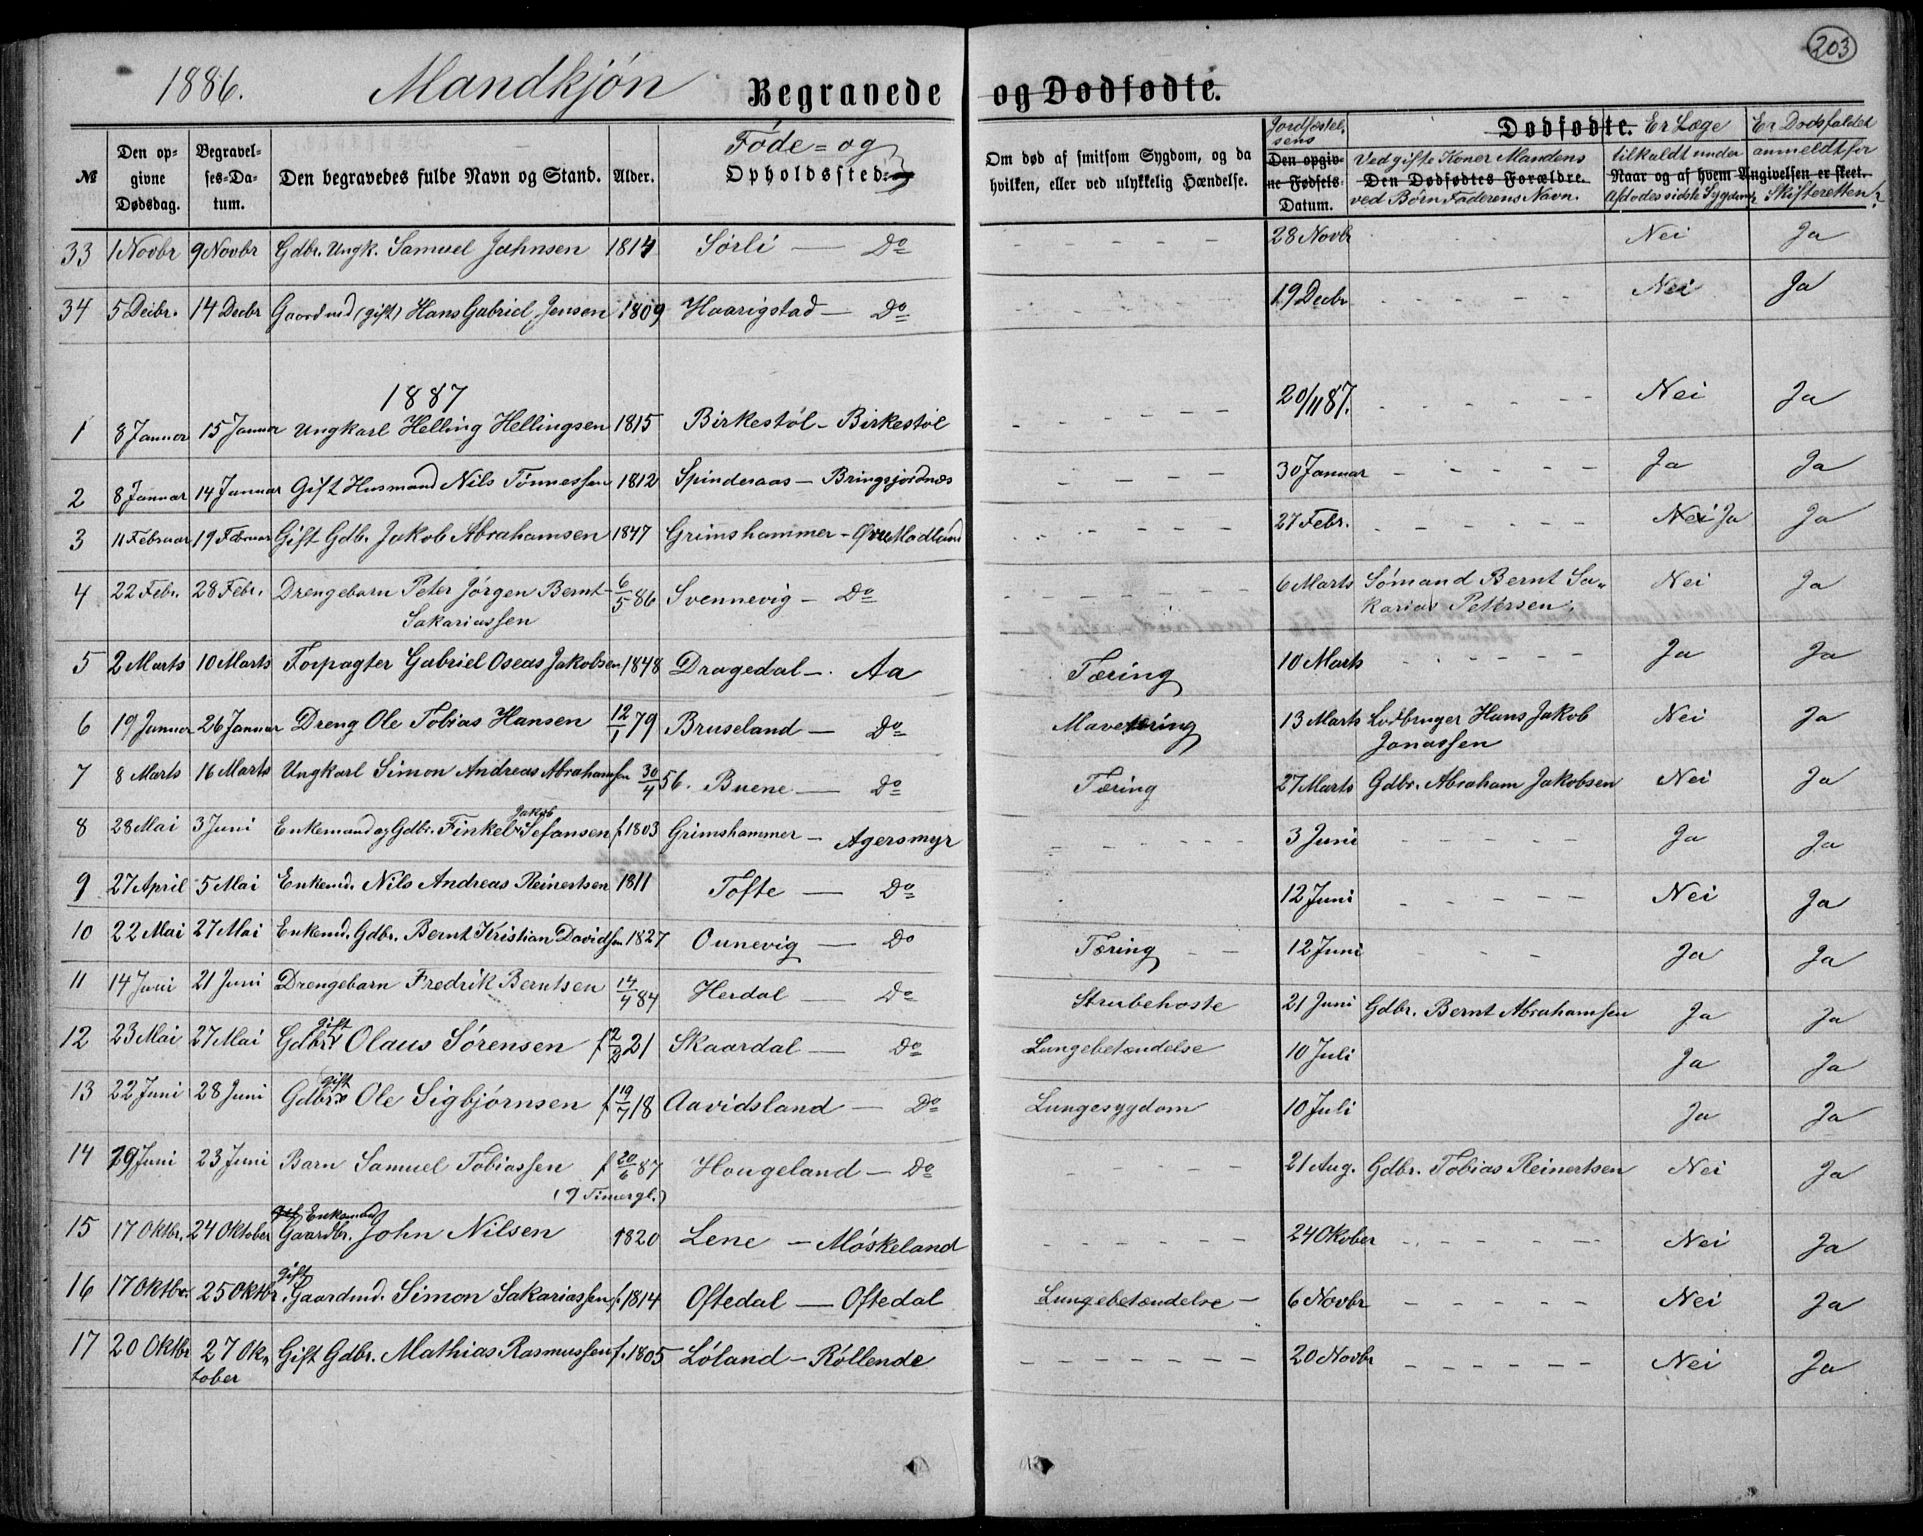 203
1886. Mandkjøn Begravede og Dødfødte.
№ Den opgivne Dødsdag. Begravelses-Datum. Den begravedes fulde Navn og Stand. Alder. Føde- og Opholdssted. Om død af smitsom Sygdom, og da hvilken, eller ved ulykkelig Hændelse. Jordfæstelsens Den opgivne Fødsels Datum. Dødfødte. Ved gifte Koner Mandens Den Dødfødtes Forældre. ved Børn Faderens Navn. Er Læge tilkaldt under Naar og af hvem Angivelsen er skeet. Afdødes sidste Sygdom Er Dødsfaldet anmeldt for Skifteretten?
33 1 Novbr 9 Novbr Gdbr. Ungk. Samuel Jahnsen 1814 Sørli — Do - - - - - - 28 Novbr Nei Ja
34 5 Decbr. 14 Decbr Gaardmd (gift) Hans Gabriel Jensen 1809 Haarigstad — Do 19 Decbr - - - - - Nei Ja
1887
1 8 Januar 15 Januar Ungkarl Helling Hellingsen 1815 Birkestøl - Birkestøl - - - - - 20/11 87. - - - - - Nei Ja
2 8 Januar 14 Januar Gift Husmand Nils Tønnessen 1812 Spinderaas — Bringsjordnæs - - - - 30 Januar - - - - - Ja Ja
3 11 Februar 19 Februar Gift Gdb. Jakob Abrahamsen 1847 Grimshammer - Øvre Modland - - - - - 27 Febr. - - - - - Nei Ja Ja
4 22 Febr. 28 Febr. Drengebarn Peter Jørgen Bernt- 6/5 86 Svennevig - Do - - - - - - 6 Marts Sømand Bernt Sa- Nei Ja
Sakariassen karias Petersen.
5 2 Marts 10 Marts Forpagter Gabriel Oseas Jakobsen 1848 Dragedal —. Aa Tæring 10 Marts - - - - - Ja Ja
6 19 Januar 26 Januar Dreng Ole Tobias Hansen 12/1 79 Bruseland — Do Mavetæring 13 Marts Lodbruger Hans Jakob Nei Ja
Jonassen
7 8 Marts 16 Marts Ungkarl Simon Andreas Abrahamsen 30/4 56. Buene — Do Tæring 27 Marts Gdbr. Abraham Jakobsen Nei Ja
Jakob
8 28 Mai 3 Juni Enkemand og Gdbr. Finkel Sefansen f. 1803 Grimshammer — Agersmyr - - - - - 3 Juni - - - - - Ja Ja
9 27 April 5 Mai Enkemd. Nils Andreas Reinertsen 1811 Tofte — Do 12 Juni - - - - - Nei Ja
10 22 Mai 27 Mai Enkemd. Gdbr. Bernt Kristian Davidsen 1827 Ounevig — Do Tæring - - 12 Juni - - - - Ja Ja
11 14 Juni 21 Juni Drengebarn Fredrik Berntsen 14/4 84 Herdal — Do Strubehoste 21 Juni Gdbr. Bernt Abrahamsen Ja Ja
gift
12 23 Mai 27 Mai Gdbr. Olaus Sørensen f 2/2 21 Skaardal — Do Lungebetændelse 10 Juli Ja Ja
gift
13 22 Juni 28 Juni Gdbr. Ole Sigbjørnsen f 19/7 18 Aavidsland — Do Lungesygdom 10 Juli Ja Ja
14 29 Juni 23 Juni Barn Samuel Tobiassen f 20/6 87 Hougeland — Do - - - - - 21 Aug. Gdbr. Tobias Reinertsen Nei Ja
(9 Timer gl.)
gift Enkemand
15 17 Oktbr. 24 Oktober Gaardbr. John Nilsen 1820 Lene — Møskeland - - - - - 24 Okober - - - - - Nei Ja
gift
16 17 Oktbr. 25 Oktbr. Gaardmd. Simon Sakariassen f. 1814 Oftedal — Oftedal Lungebetændelse - 6 Novbr - - - - - Nei Ja
17 20 Oktbr 27 Ok- Gift Gdbr. Mathias Rasmussen f. 1805 Løland - Røllende - - - - - - - 20 Novbr - - - - - Nei Ja
tober